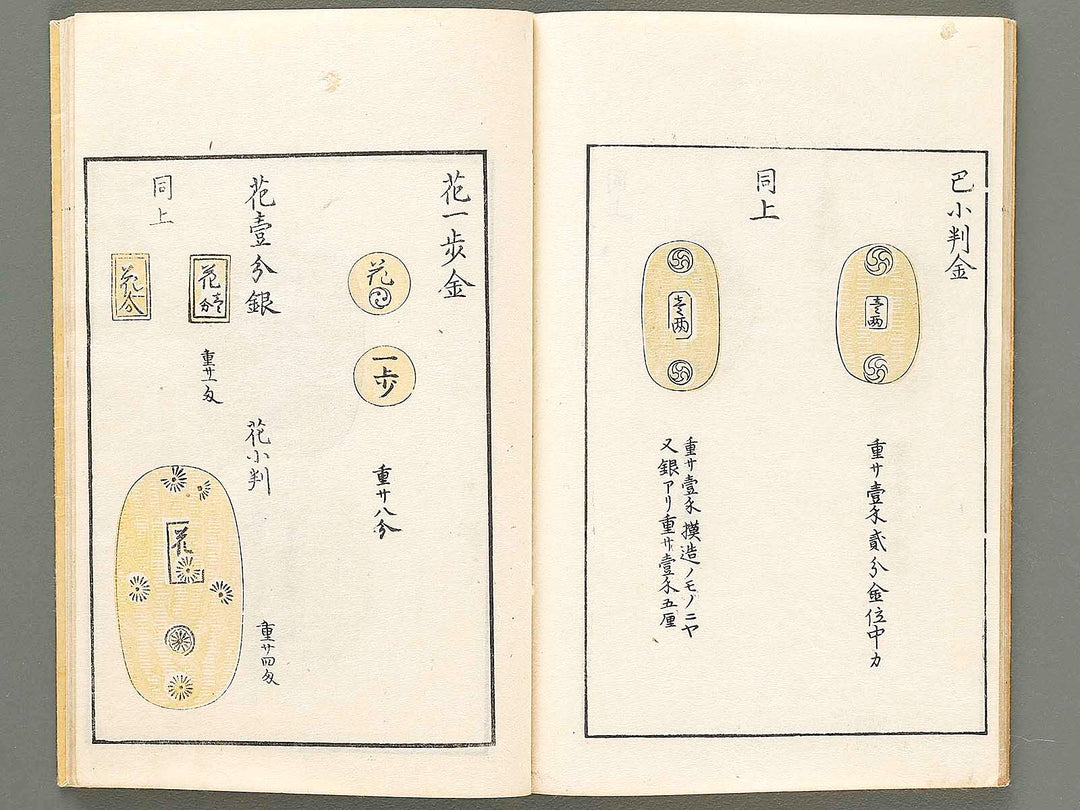 巴小判金
壹両
重サ壹匁貳分金位中カ
同上
壹両
重サ壹匁摸造ノモノニヤ
又銀アリ重サ壹匁五厘
花一歩金
花
一歩
重サ八分
花壹分銀
花壹分
重サ一匁
同上
花小判
花
重サ四匁